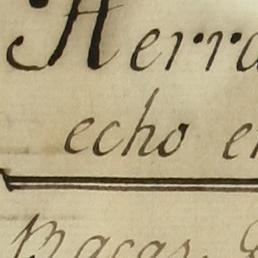 Herra
echo e
Bacas. &